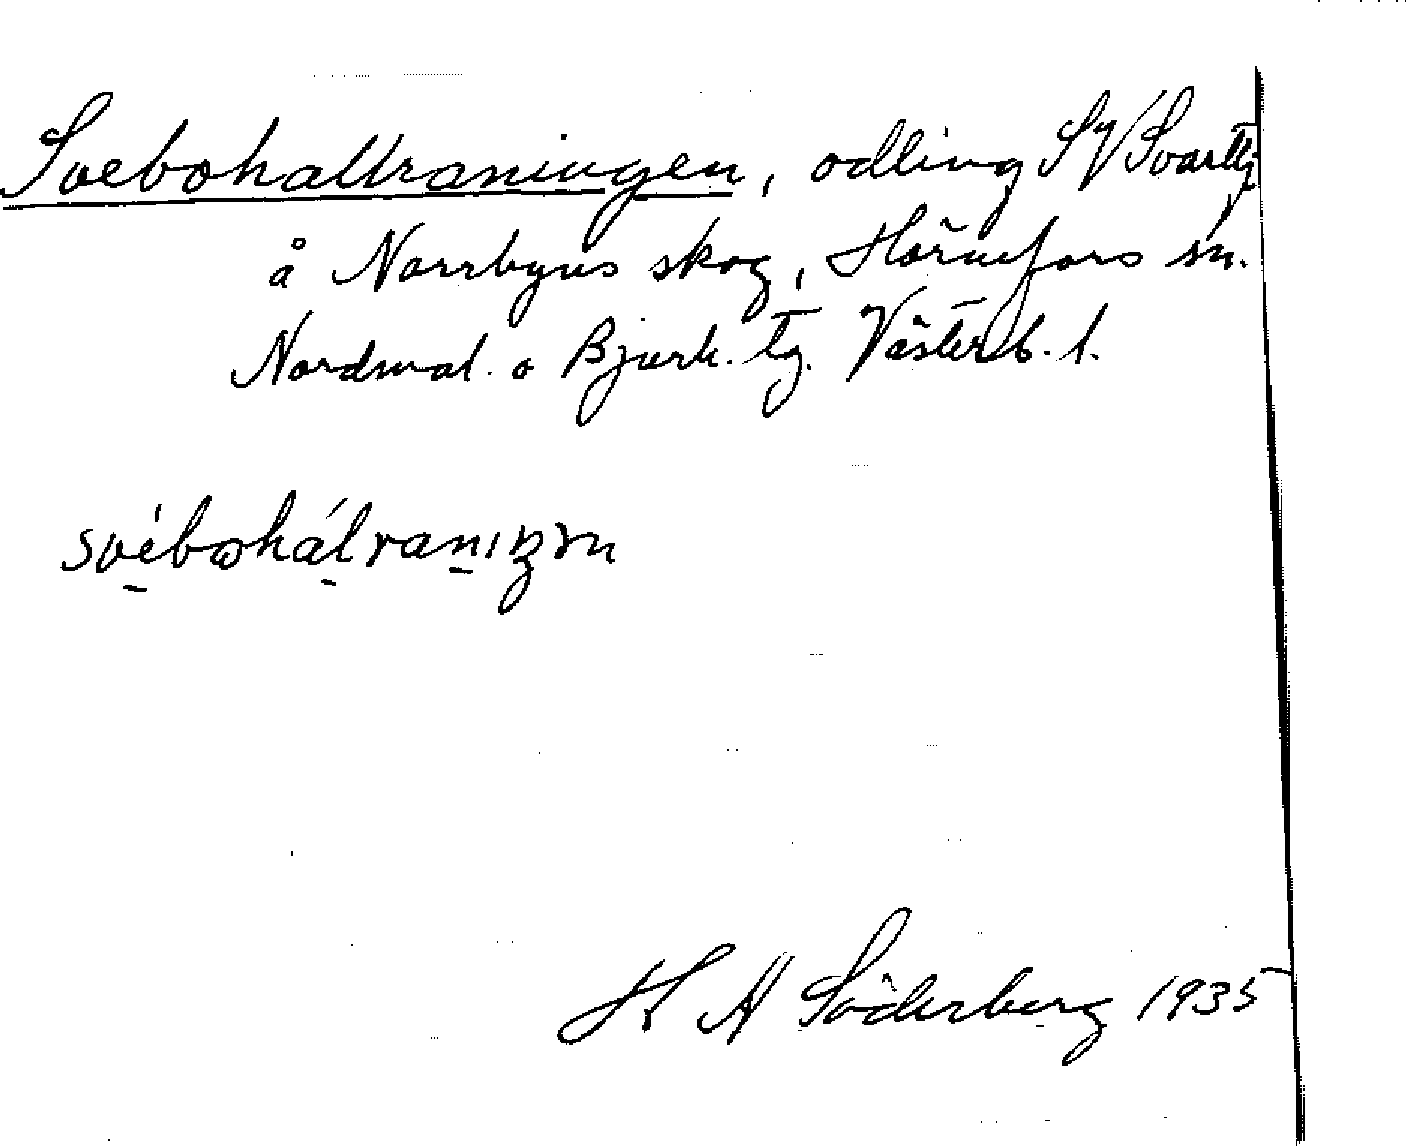 Svebohallraningen, odling SV Svarttj
å Norrbyns skog, Hörnefors sn.
Nordmal. o Bjurh. tg. Västerb. l.
svébωhálranıŋən
H A Söderberg 1935